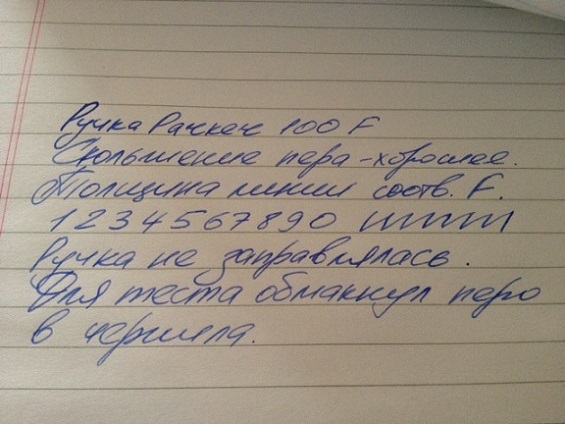 Ручка Рачкеч 100 F
Скольжение пера - хорошее.
Толщина линии соотв. F.
1 2 3 4 5 6 7 8 9 0
Ручка не заправлялась.
Для теста обмакнул перо
в чернила.